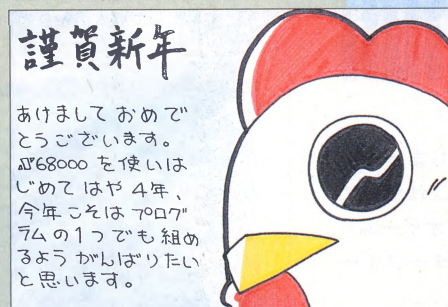 謹賀新年
あけまして おめで
とうございます。
X68000 を使いは
じめて はや 4年、
今年こそは プログ
ラムの1つでも組め
るよう がんばりたい
と思います。